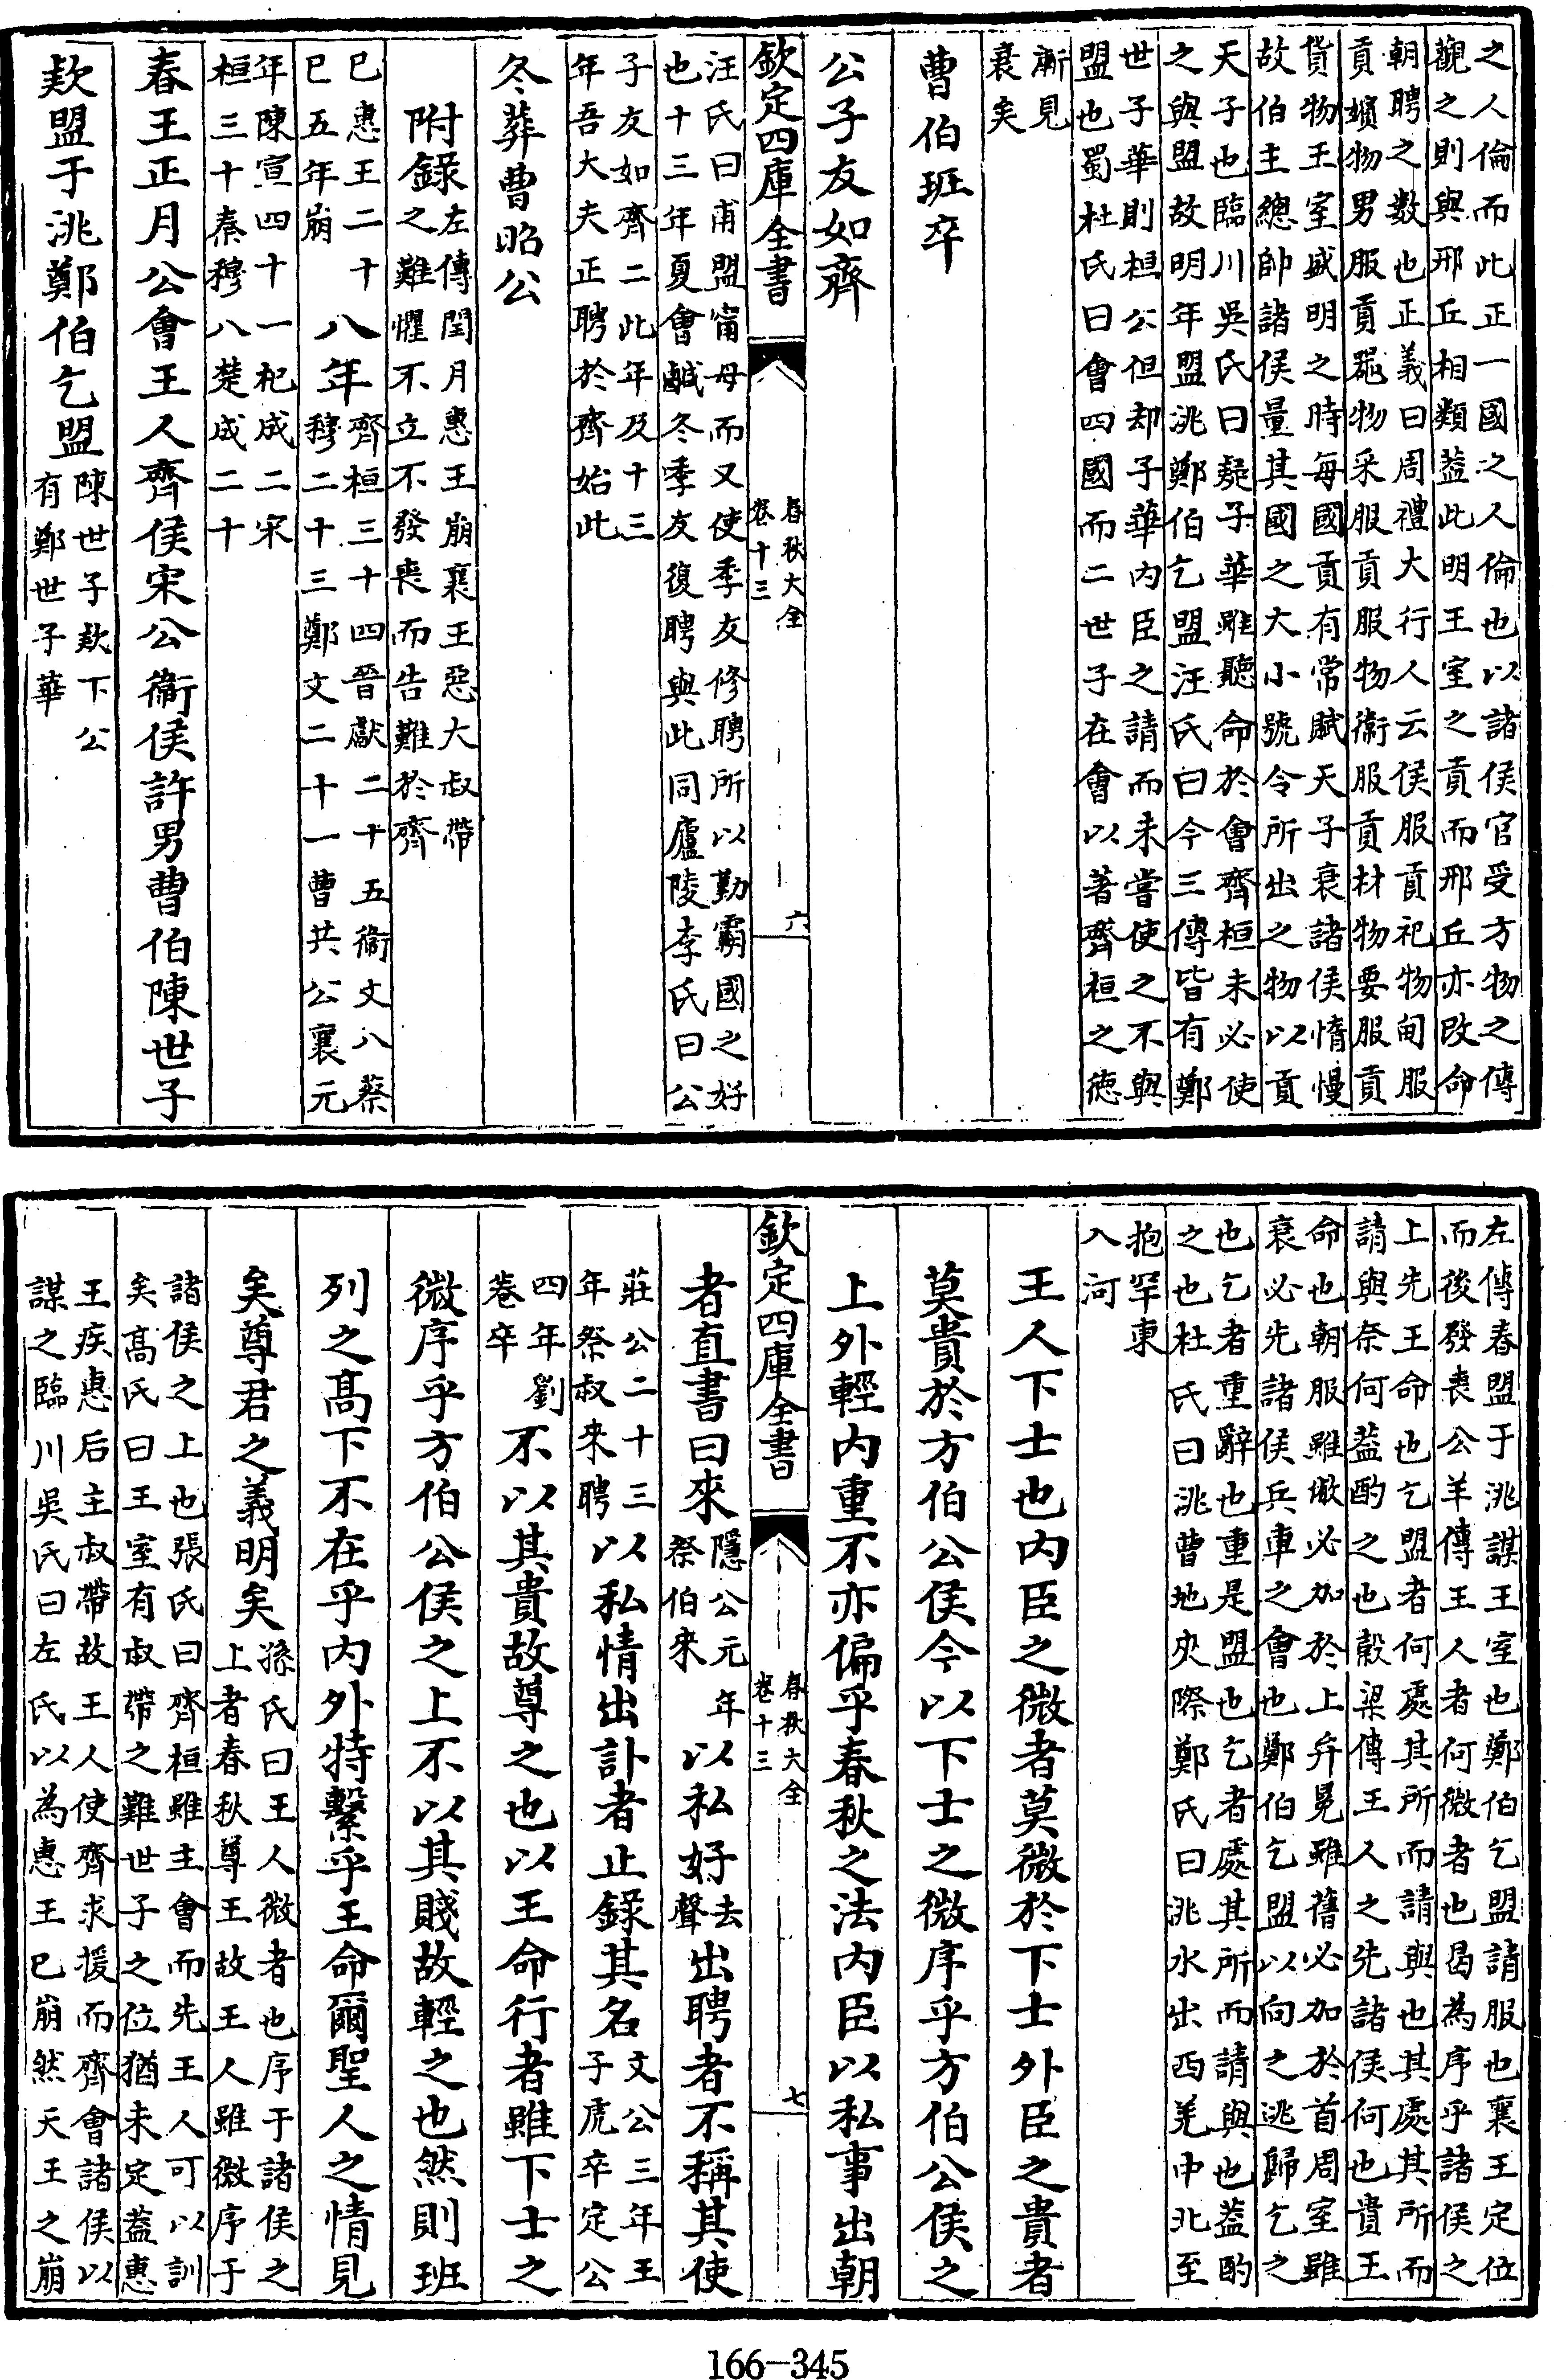 之人倫而此正一國之人倫也以諸侯官受方物之傳
觀之則與邢丘相類葢此明王室之貢而邢丘亦改命
朝聘之數也正義曰周禮大行人云侯服貢祀物甸服
貢嬪物男服貢器物采服貢服物衛服貢材物要服貢
貨物王室盛明之時每國貢有常賦天子衰諸侯惰慢
故伯主總帥諸侯量其國之大小號令所出之物以貢
天子也臨川吳氏曰疑子華雖聽命於會齊桓未必使
之與盟故明年盟洮鄭伯乞盟汪氏曰今三傳皆有鄭
世子華則桓公但却子華内臣之請而未嘗使之不與
盟也蜀杜氏曰會四國而二世子在會以著齊桓之徳
漸見
衰矣
曹伯班卒
公子友如齊
欽定四庫全書
春秋大全
卷十三
六
汪氏曰甫盟甯母而又使季友修聘所以勤霸國之好
也十三年夏會鹹冬季友復聘與此同廬陵李氏曰公
子友如齊二此年及十三
年吾大夫正聘於齊始此
冬葬曹昭公
附録
左傳閏月惠王崩襄王惡大叔帶
之難懼不立不發喪而告難於齊
巳惠王二十
巳五年崩
八年
齊桓三十四晉獻二十五衛文八蔡
穆二十三鄭文二十一曹共公襄元
年陳宣四十一杞成二宋
桓三十秦穆八楚成二十
春王正月公會王人齊侯宋公衛侯許男曹伯陳世子
欵盟于洮鄭伯乞盟
陳世子欵下公
有鄭世子華
左傳春盟于洮謀王室也鄭伯乞盟請服也襄王定位
而後發喪公羊傳王人者何微者也曷為序乎諸侯之
上先王命也乞盟者何處其所而請與也其處其所而
請與奈何葢酌之也榖梁傳王人之先諸侯何也貴王
命也朝服雖敝必加於上弁冕雖舊必加於首周室雖
衰必先諸侯兵車之會也鄭伯乞盟以向之逃歸乞之
也乞者重辭也重是盟也乞者處其所而請與也葢酌
之也杜氏曰洮曹地夾際鄭氏曰洮水出西羌中北至
抱罕東
入河
王人下士也内臣之微者莫微於下士外臣之貴者
莫貴於方伯公侯今以下士之微序乎方伯公侯之
上外輕内重不亦偏乎春秋之法内臣以私事出朝
欽定四庫全書
春秋大全
卷十三
七
者直書曰來
隱公元年
祭伯來
以私好
去
聲
出聘者不稱其使
莊公二十三
年祭叔來聘
以私情出訃者止録其名
文公三年王
子虎卒定公
四年劉
卷卒
不以其貴故尊之也以王命行者雖下士之
微序乎方伯公侯之上不以其賤故輕之也然則班
列之髙下不在乎内外特繫乎王命爾聖人之情見
矣尊君之義明矣
孫氏曰王人微者也序于諸侯之
上者春秋尊王故王人雖微序于
諸侯之上也張氏曰齊桓雖主會而先王人可以訓
矣髙氏曰王室有叔帶之難世子之位猶未定葢惠
王疾惠后主叔帶故王人使齊求援而齊會諸侯以
謀之臨川吳氏曰左氏以為惠王已崩然天王之崩
166-345